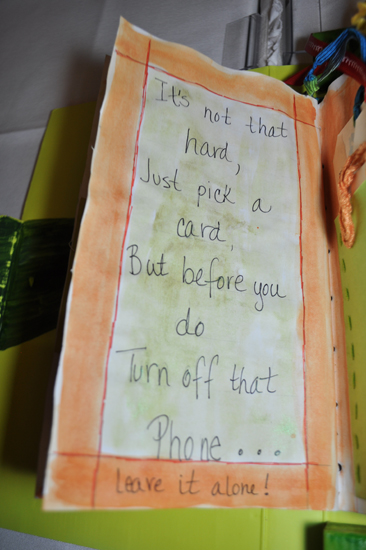 It's not that
hard,
Just pick a
card,
But before you
do
Turn off that
Phone...
Leave it alone!